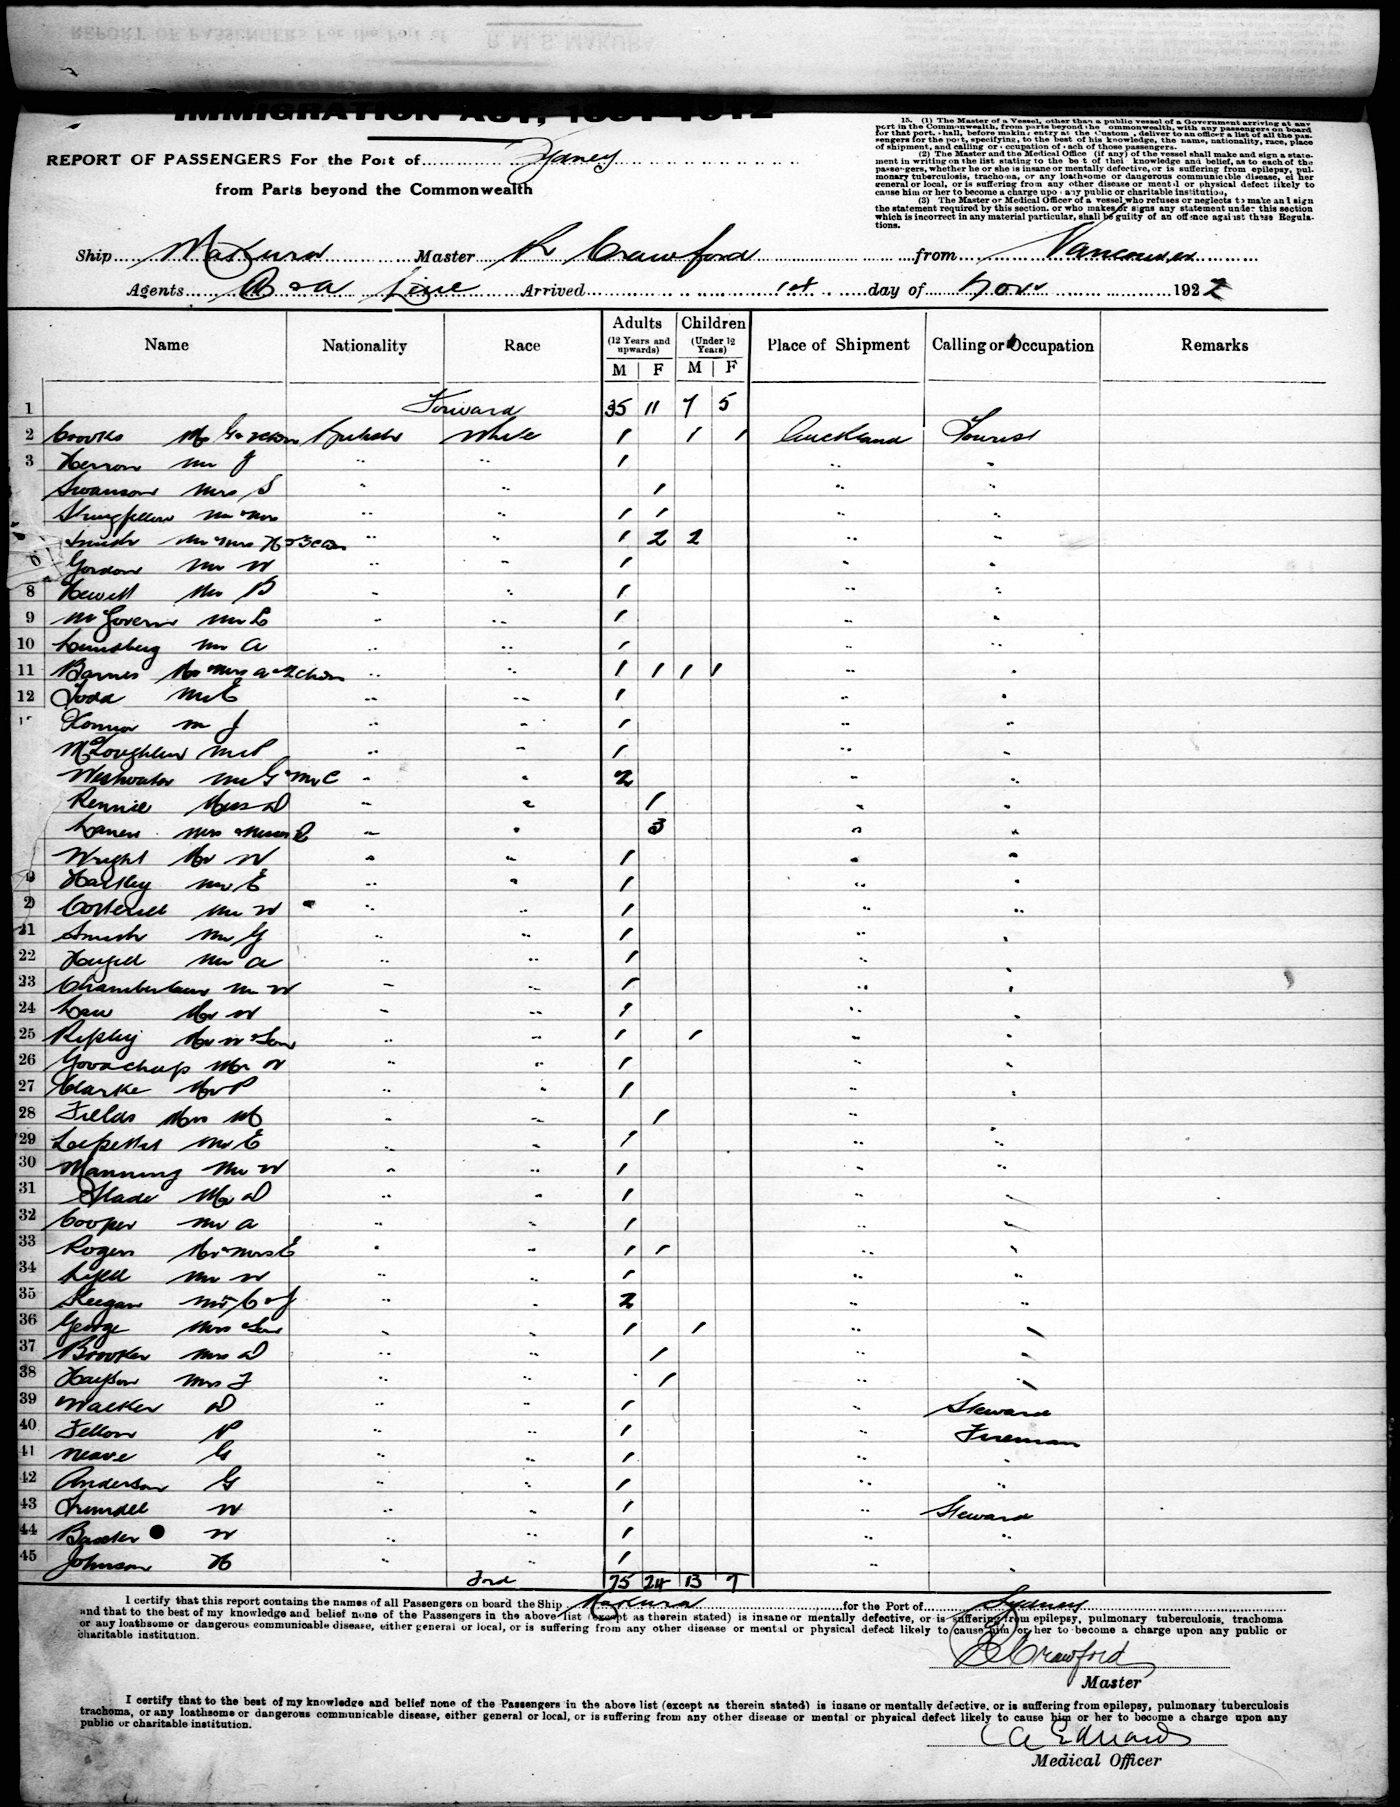 IMMIGRATION ACT, 1901-1912
REPORT OF PASSENGERS For the Port of Sydney
from Parts beyond the Commonwealth
15. (1) The Master of a Vessel, other than a public vessel of a Government arriving at any
port in the Commonwealth, from parts beyond the Commonwealth, with any passengers on board
for that port, shall, before making entry at the Customs, deliver to an officer a list of all the pas-
sengers for the port, specifying, to the best of his knowledge, the name, nationality, race, place
of shipment, and calling or occupation of each of those passengers.
(2) The Master and the Medical Office (if any) of the vessel shall make and sign a state-
ment in writing on the list stating to the best of their knowledge and belief, as to each of the
passengers, whether he or she is insane or mentally defective, or is suffering from epilepsy, pul-
monary tuberculosis, trachoma, or any loathsome or dangerous communicable disease, either
general or local, or is suffering from any other disease or mental or physical defect likely to
cause him or her to become a charge upon any public or charitable institution.
(3) The Master or Medical Officer of a vessel who refuses or neglects to make and sign
the statement required by this section, or who makes or signs any statement under this section
which is incorrect in any material particular, shall be guilty of an offence against these Regula-
tions.
Ship Makura Master R Crawford from Vancouver
Agents A & A Line Arrived 1st day of Nov 1922
Name Nationality Race Adults (12 Years and upwards) M F Children (Under 12 Years) M F Place of Shipment Calling or Occupation Remarks
1 Forward 35 11 7 5
2 Crooks Mr G British White 1 1 1 Auckland Tourist
3 Herron Mr J " " 1 " "
Swanson Mrs S " " 1 " "
Mr & Mrs " " 1 1 " "
Smith Mr & Mrs H " " 1 2 2 " "
Gordon Mr W " " 1 " "
8 Hewett Mr B " " 1 " "
9 McGovern Mr L " " 1 " "
10 Lundberg Mr A " " 1 " "
11 Barnes Mr & Mrs A & 2 chdn " " 1 1 1 1 " "
12 Todd Mr E " " 1 " "
Connor Mr J " " 1 " "
McLoughlin Mr P " " 1 " "
Westwater Mr G & Mr C " " 2 " "
Rennie Miss D " " 1 " "
Mrs & Misses " " 3 " "
Wright Mr W " " 1 " "
Hartley Mr E " " 1 " "
Cotterell Mr W " " 1 " "
21 Smith Mr G " " 1 " "
22 Mr A " " 1 " "
23 Chamberlain Mr W " " 1 " "
24 Law Mr W " " 1 " "
25 Ripley Mr W & Son " " 1 1 " "
26 Goodchap Mr W " " 1 " "
27 Clarke Mr P " " 1 " "
28 Fields Mrs M " " 1 " "
29 Mr E " " 1 " "
30 Manning Mr W " " 1 " "
31 Slade Mr D " " 1 " "
32 Cooper Mr A " " 1 " "
33 Rogers Mr & Mrs E " " 1 1 " "
34 Lyell Mr W " " 1 " "
35 Keegan Mr C & J " " 2 " "
36 George Mrs & Son " " 1 1 " "
37 Brooker Mrs D " " 1 " "
38 Mrs F " " 1 " "
39 Walker D " " 1 " Steward
40 Fellow P " " 1 " Fireman
41 Neave G " " 1 " "
42 Anderson G " " 1 " "
43 Trundell W " " 1 " Steward
44 Baxter W " " 1 " "
45 Johnson H " " 1 " "
75 24 13 7
I certify that this report contains the names of all Passengers on board the Ship Makura for the Port of Sydney
and that to the best of my knowledge and belief none of the Passengers in the above list (except as therein stated) is insane or mentally defective, or is suffering from epilepsy, pulmonary tuberculosis, trachoma
or any loathsome or dangerous communicable disease, either general or local, or is suffering from any other disease or mental or physical defect likely to cause him or her to become a charge upon any public or
charitable institution.
R Crawford
Master
I certify that to the best of my knowledge and belief none of the Passengers in the above list (except as therein stated) is insane or mentally defective, or is suffering from epilepsy, pulmonary tuberculosis
trachoma, or any loathsome or dangerous communicable disease, either general or local, or is suffering from any other disease or mental or physical defect likely to cause him or her to become a charge upon any
public or charitable institution.
A Edwards
Medical Officer